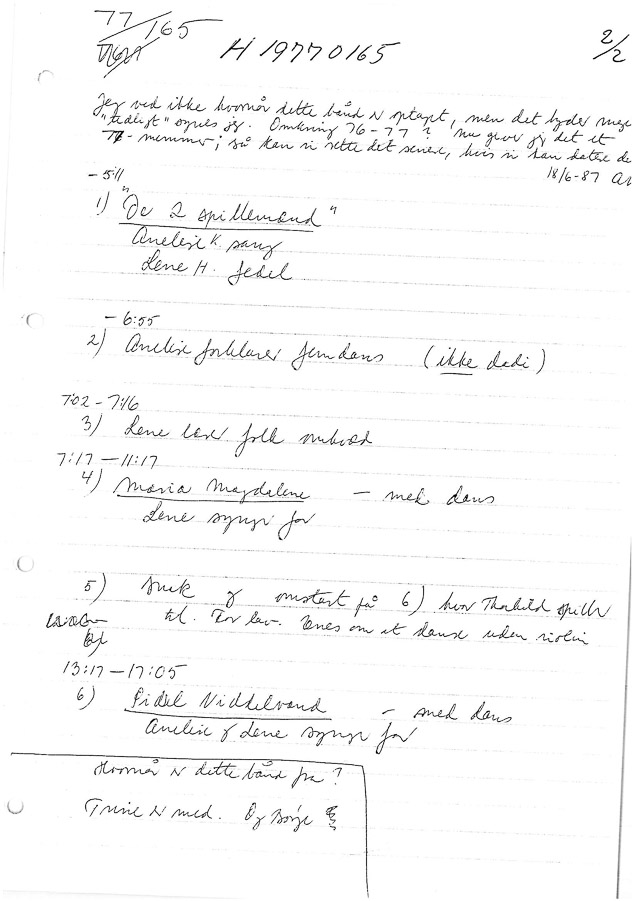 77/165
H 1977 0165
2/2
Jeg ved ikke hvornår dette bånd er optaget, men det lyder mege
"tidligt" synes jeg. Omkring 76-77? Nu giver jeg det et
77-nummer; så kan vi rette det senere, hvis vi kan datere de
18/6-87
- 5:11
1) "De 2 spillemænd"
Anelise K. sang
Lene H. fedel
- 6:55
2) Anelise forklarer femdans (ikke dadi)
7:02 - 7:16
3) Lene lærer folk omkvæd
7:17 - 11:17
4) Maria Magdalene - med dans
Lene synger for
5) Snak og omstart på 6) hvor Thorkild spiller
til. For lav. Enes om at danse uden violin
13:17 - 17:05
6) Fidel Viddelvand - med dans
Anelise og Lene synger for
Hvornår er dette bånd fra?
Trine er med. Og Børge